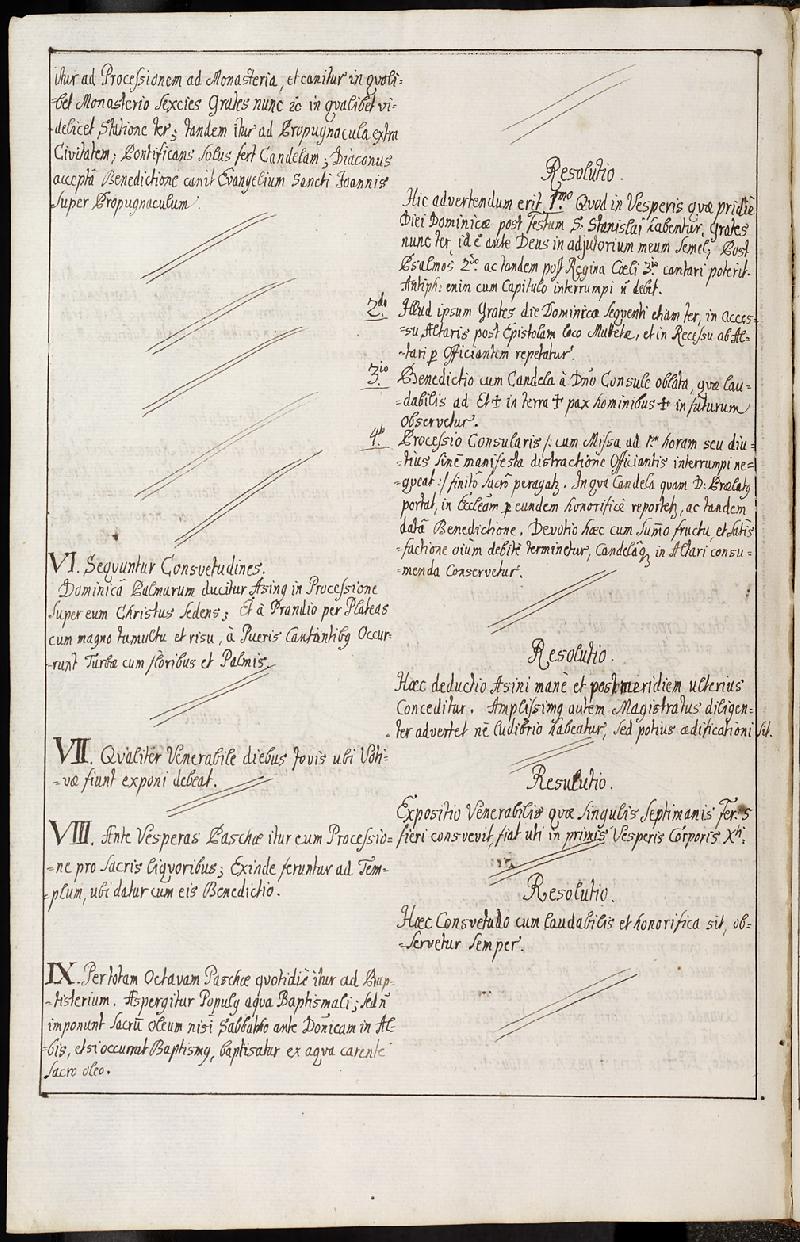 itur ad Processionem ad Monasteria, et canitur in quoli-
bet Monasterio sexcies Grates nunc &c in qualibet vi-
delicet Statione ter; tandem itur ad Propugnacula extra
Civitatem; Pontificans solus fert Candelam; Diaconus
acceptâ Benedictione canit Evangelium Sancti Joannis
super Propugnaculum.
VI. Sequuntur Consvetudines.
Dominicâ Palmarum ducitur Asing in Processione
super eum Christus sedens; Et à Prandio per Plateas
cum magno tumultu et risu, à Pueris Cantantibg Occur-
-runt Turbæ cum floribus et Palmis.
VII. Qvaliter Venerabile diebus Jovis ubi Voti-
-væ fiunt exponi debeat.
VIII. Ante Vesperas Paschæ itur cum Processio-
-ne pro Sacris liqvoribus; Exinde feruntur ad Tem-
-plum, ubi datur cum eis Benedictio.
IX. Per totam Octavam Paschæ qvotidiè itur ad Bap-
-tisterium. Aspergitur Populg aqva Baptismali; sed ñ
imponunt Sacrũ Oleum nisi Sabbatho ante Dõnicam in Al-
-bis, et si occurrat Baptismg, baptisatur ex aqva carente
Sacro oleo.
Resolutio.
Hic advertendum erit 1.mo Quod in Vesperis qvæ pridiè
Diei Dominicæ post Festum S. Stanislai habentur, Grates
nunc ter, id ẽ ante Deus in adjutorium meum semel; Post
Psalmos 2do ac tandem post Regina Cœli 3tio cantari poterit.
Antiph: enim cum Capitulo interrumpi ñ debit.
2do Illud ipsum Grates die Dominica seqventi etiam ter, in acces-
-su Altaris post Epistolam loco Mutetæ, et in Recessu ab Al-
-tari p Officiantem repetatur.
3tio Benedictio cum Candela à Dño Consule oblata, qvæ lau-
-dabilis ad Et ✝ in terra ✝ pax hominibus ✝ in futurum
Observetur.
4to Processio Consularis /: cum Missa ad horam seu diu-
-tius sinè manifesta distractione Officiantis interrumpi ne-
-qveat :/ finito Sacro peragatr. In qva Candela quam D: Prælatg
portat, in Ecclãm p eundem honorificè reportetr, ac tandem
datâ Benedictione. Devotio hæc cum Sum̃o fructu, et satis
-factione oium debitè terminetur, Candelaq in Altari consu-
-menda Conservetur.
Resolutio.
Hæc deductio Asini manè et post meridiem ulterius
Conceditur. Amplissimg autem Magistratus diligen-
ter advertet nè ludibrio habeatur, sed potius ædificationi sit.
Resulutio.
Expositio Venerabilis qvæ singulis Septimanis Fer. 5
fieri consvevit, fiat uti in primis Vesperis Corporis Xti.
Resolutio.
Hæc Consvetudo cum laudabilis et honorifica sit, ob-
-servetur semper.